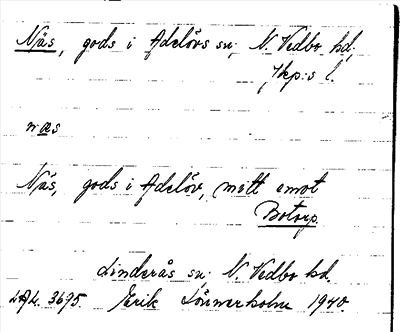 Näs, gods i Adelövs sn; N. Vedbo hd,
Jkp:s l.
næs
Näs, gods i Adelöv, mitt emot
Botorp.
Linderås sn; N. Vedbo hd.
3695. Erik Lönnerholm 1940.